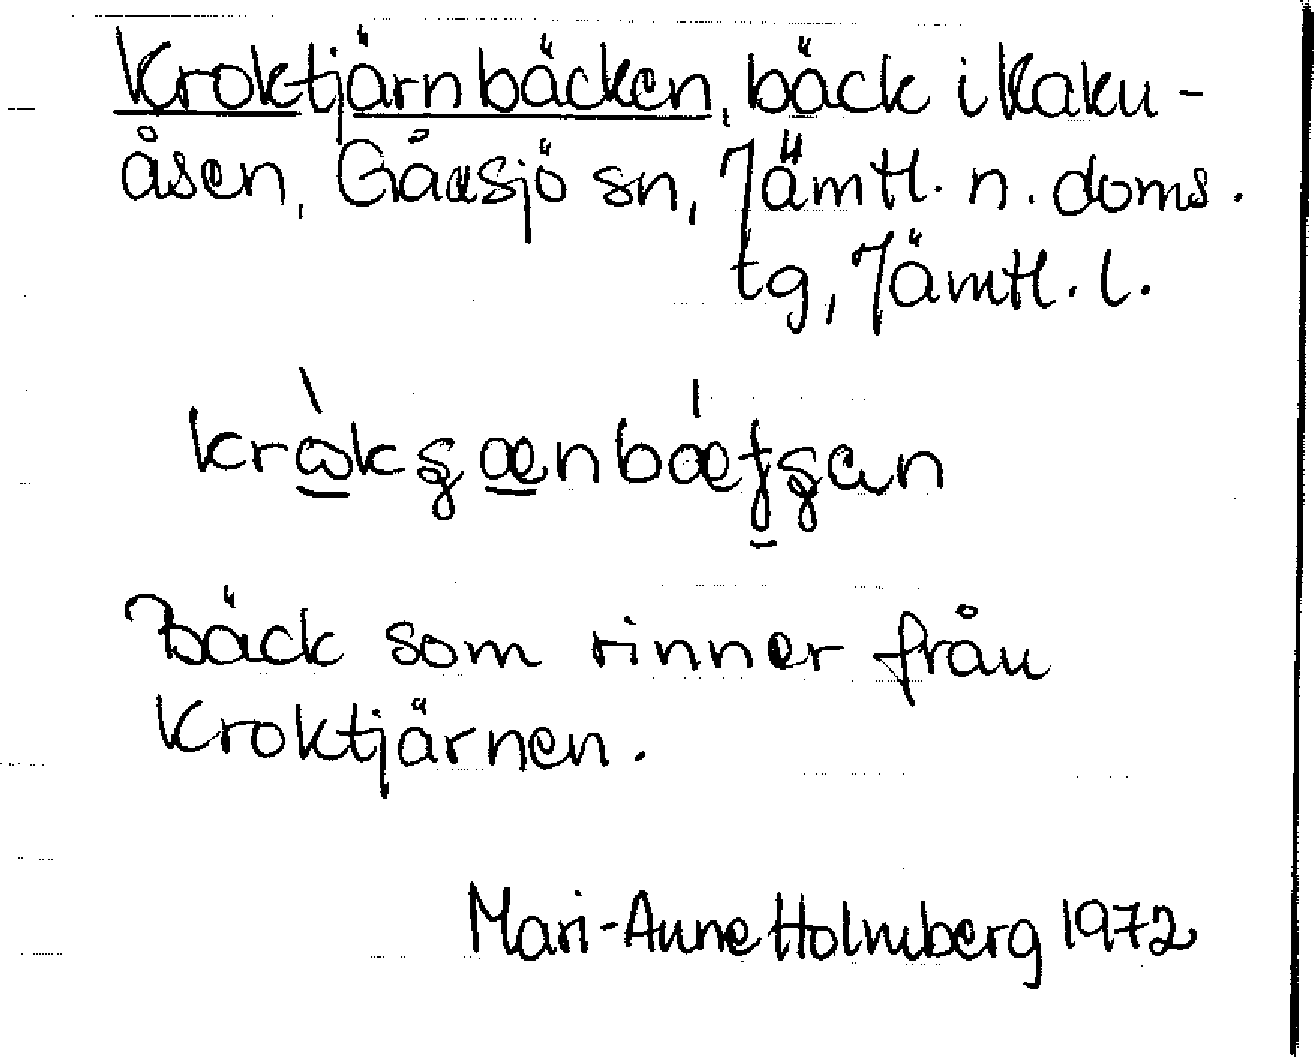 Kroktjärnbäcken, bäck i Kaku-
åsen, Gåxsjö sn, Jämtl. n. doms.
tg, Jämtl. l.
Bäck som rinner från
Kroktjärnen.
Mari-Anne Holmberg 1972